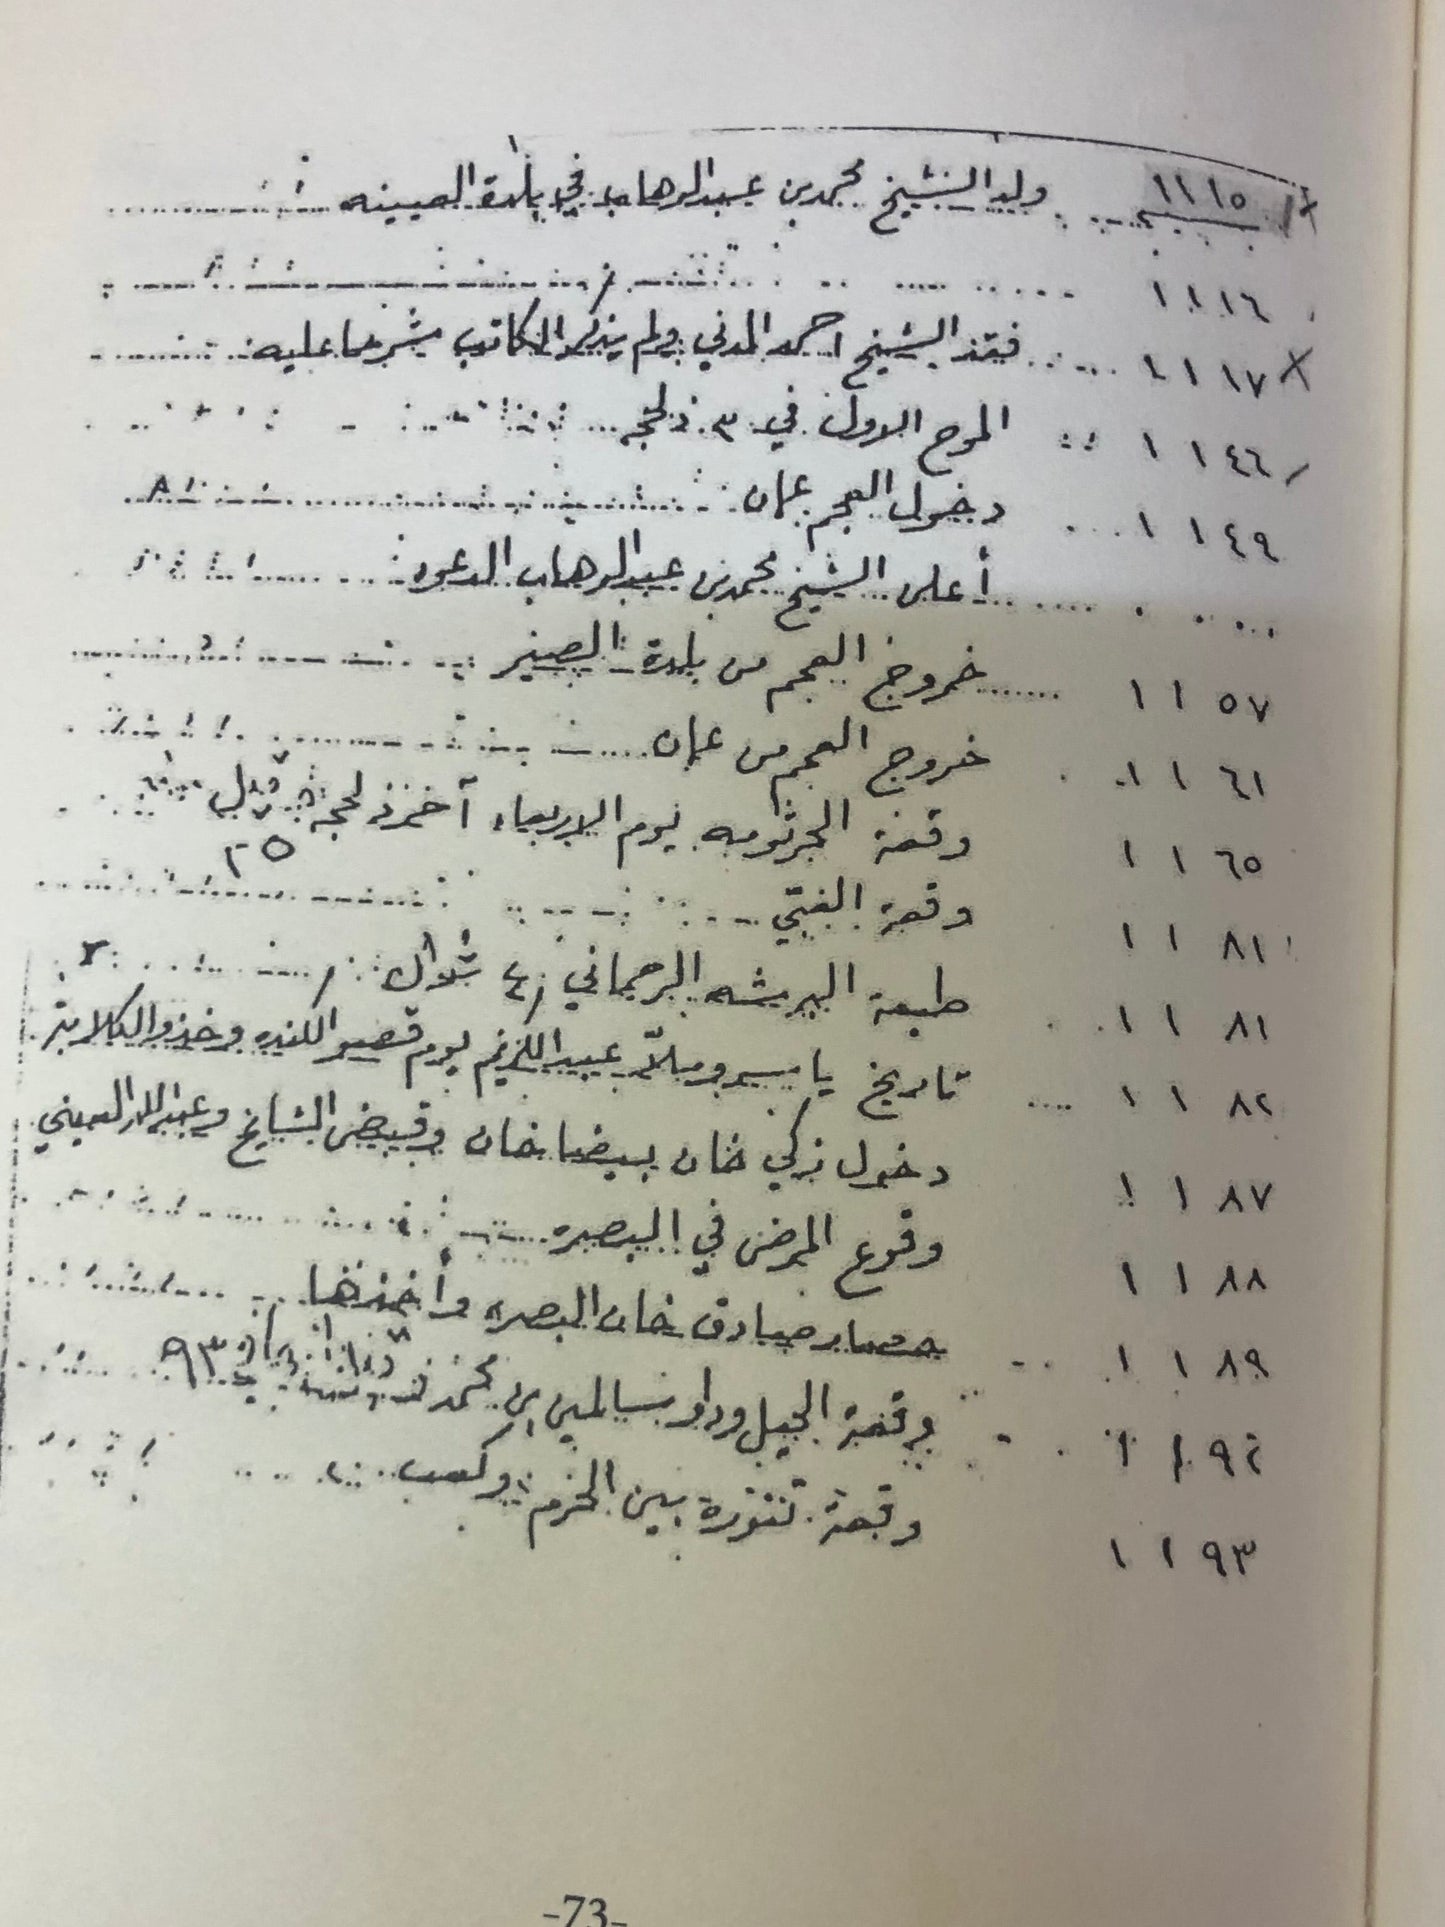 ١١١٥ ولد الشيخ محمد بن عبد الوهاب في بلدة العيينه
١١١٦
١١١٧ فقد الشيخ احمد المدني ولم يذكر الكاتب شرحا عليه
١١٤٦ الموح الاول في ٣ ذلحجه
١١٤٩ دخول العجم عمان
أعلن الشيخ محمد بن عبد الوهاب الدعوه
١١٥٧ خروج العجم من بلدة الصير
١١٦١ خروج العجم من عمان
١١٦٥ وقعة الجرثومه يوم الاربعاء آخر ذلحجه
٢٥
١١٨١ وقعة الغبي
١١٨١ طبعة البريشه الرحماني ٤ شوال
١١٨٢ تاريخ عبد الكريم يوم
١١٨٧ دخول زكي خان وقبض الشايخ وعبد الله المعيني
١١٨٨ وقوع المرض في البصره
١١٨٩ حصار صادق خان البصره وأخذها
١١٩٢ وقعة الجبل بن محمد ٩٣
١١٩٣ وقعة تنوره بين الخرم وكعب
-73-